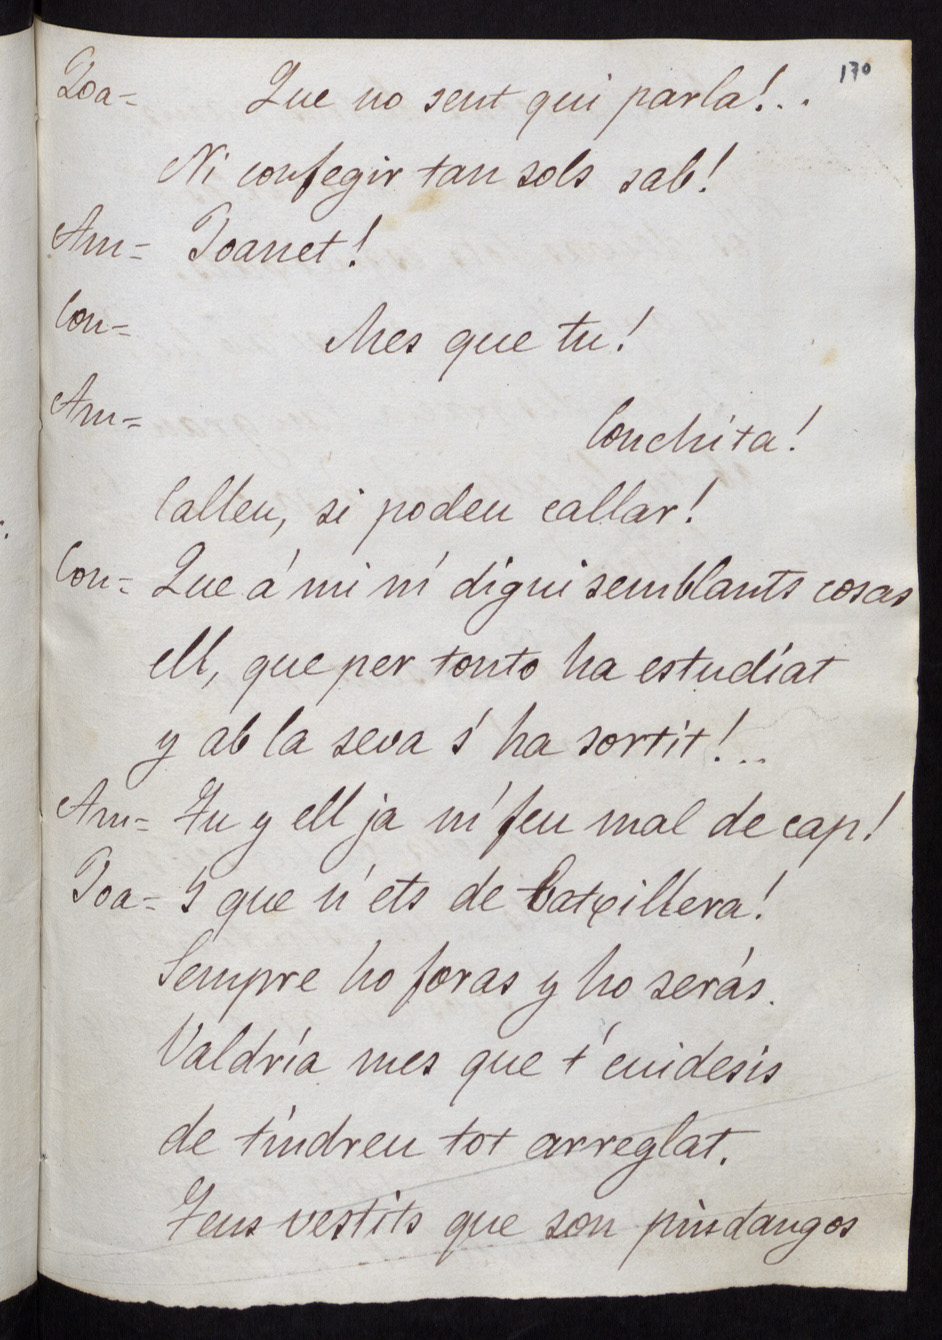 170
Joa= Que no sent qui parla!..
Ni confegir tan sols sab!
Am= Joanet!
Con= Mes que tu!
Am= Conchita!
Calleu, si podeu callar!
Con= Que á mi m' digui semblants cosas
ell, que per tonto ha estudiat
y ab la seva s' ha sortit!...
Am= Tu y ell ja m' feu mal de cap!
Joa= Y que n' ets de batxillera!
Sempre ho foras y ho serás.
Valdría mes que t' cuidesis
de tíndreu tot arreglat.
Tens vestits que son pindangos